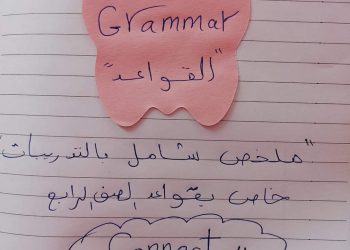 Grammar
"القواعد"
"ملخص شامل بالتدريبات"
خاص بقواعد الصف الرابع
Connect